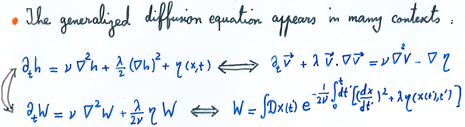 • The generalized diffusion equation appears in many contexts :
∂ₜh = ν ∇²h + λ/2 (∇h)² + η(x,t) ⟺ ∂ₜv⃗ + λ v⃗.∇v⃗ = ν∇²v⃗ - ∇η
∂ₜW = ν ∇²W + λ/2ν η W ⟺ W = ∫Dx(t) e^{-1/2ν ∫₀ᵗ dt' [(dx/dt')² + λη(x(t'),t')]}